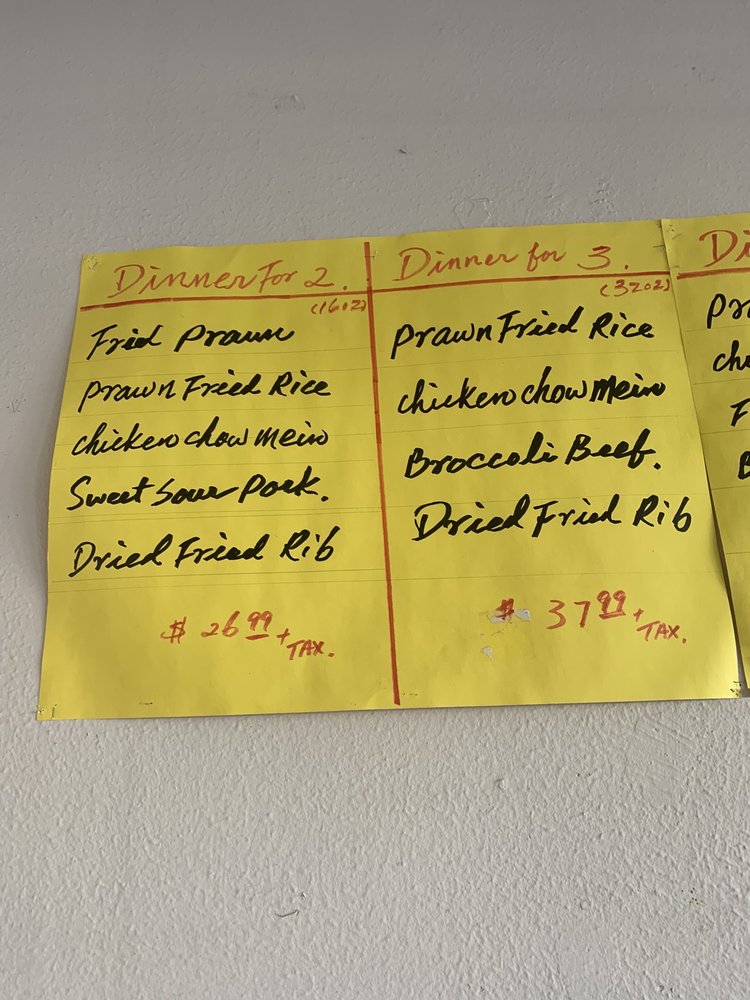 Dinner For 2.
(16oz)
Fried Prawn
Prawn Fried Rice
chicken chow mein
Sweet Sour Pork.
Dried Fried Rib
$ 26.99 + TAX.
Dinner for 3.
(32oz)
Prawn Fried Rice
chicken chow Mein
Broccoli Beef.
Dried Fried Rib
$ 37.99 + TAX.
Di
Pra
chi
F
B